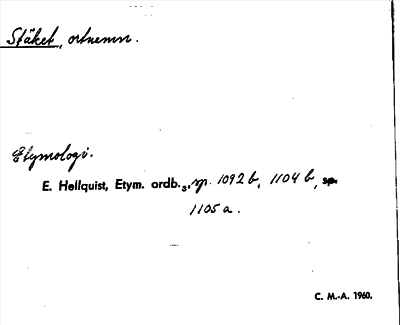 Stäket, ortnamn.
Etymologi.
E. Hellquist, Etym. ordb.3, sp. 1092 b, 1104 b, sp.
1105 a.
C. M.-A. 1960.